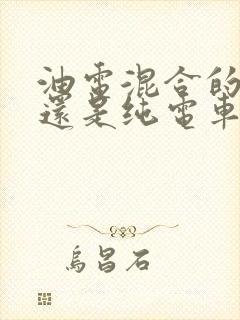 油電混合的
還是纯電車
烏昌石